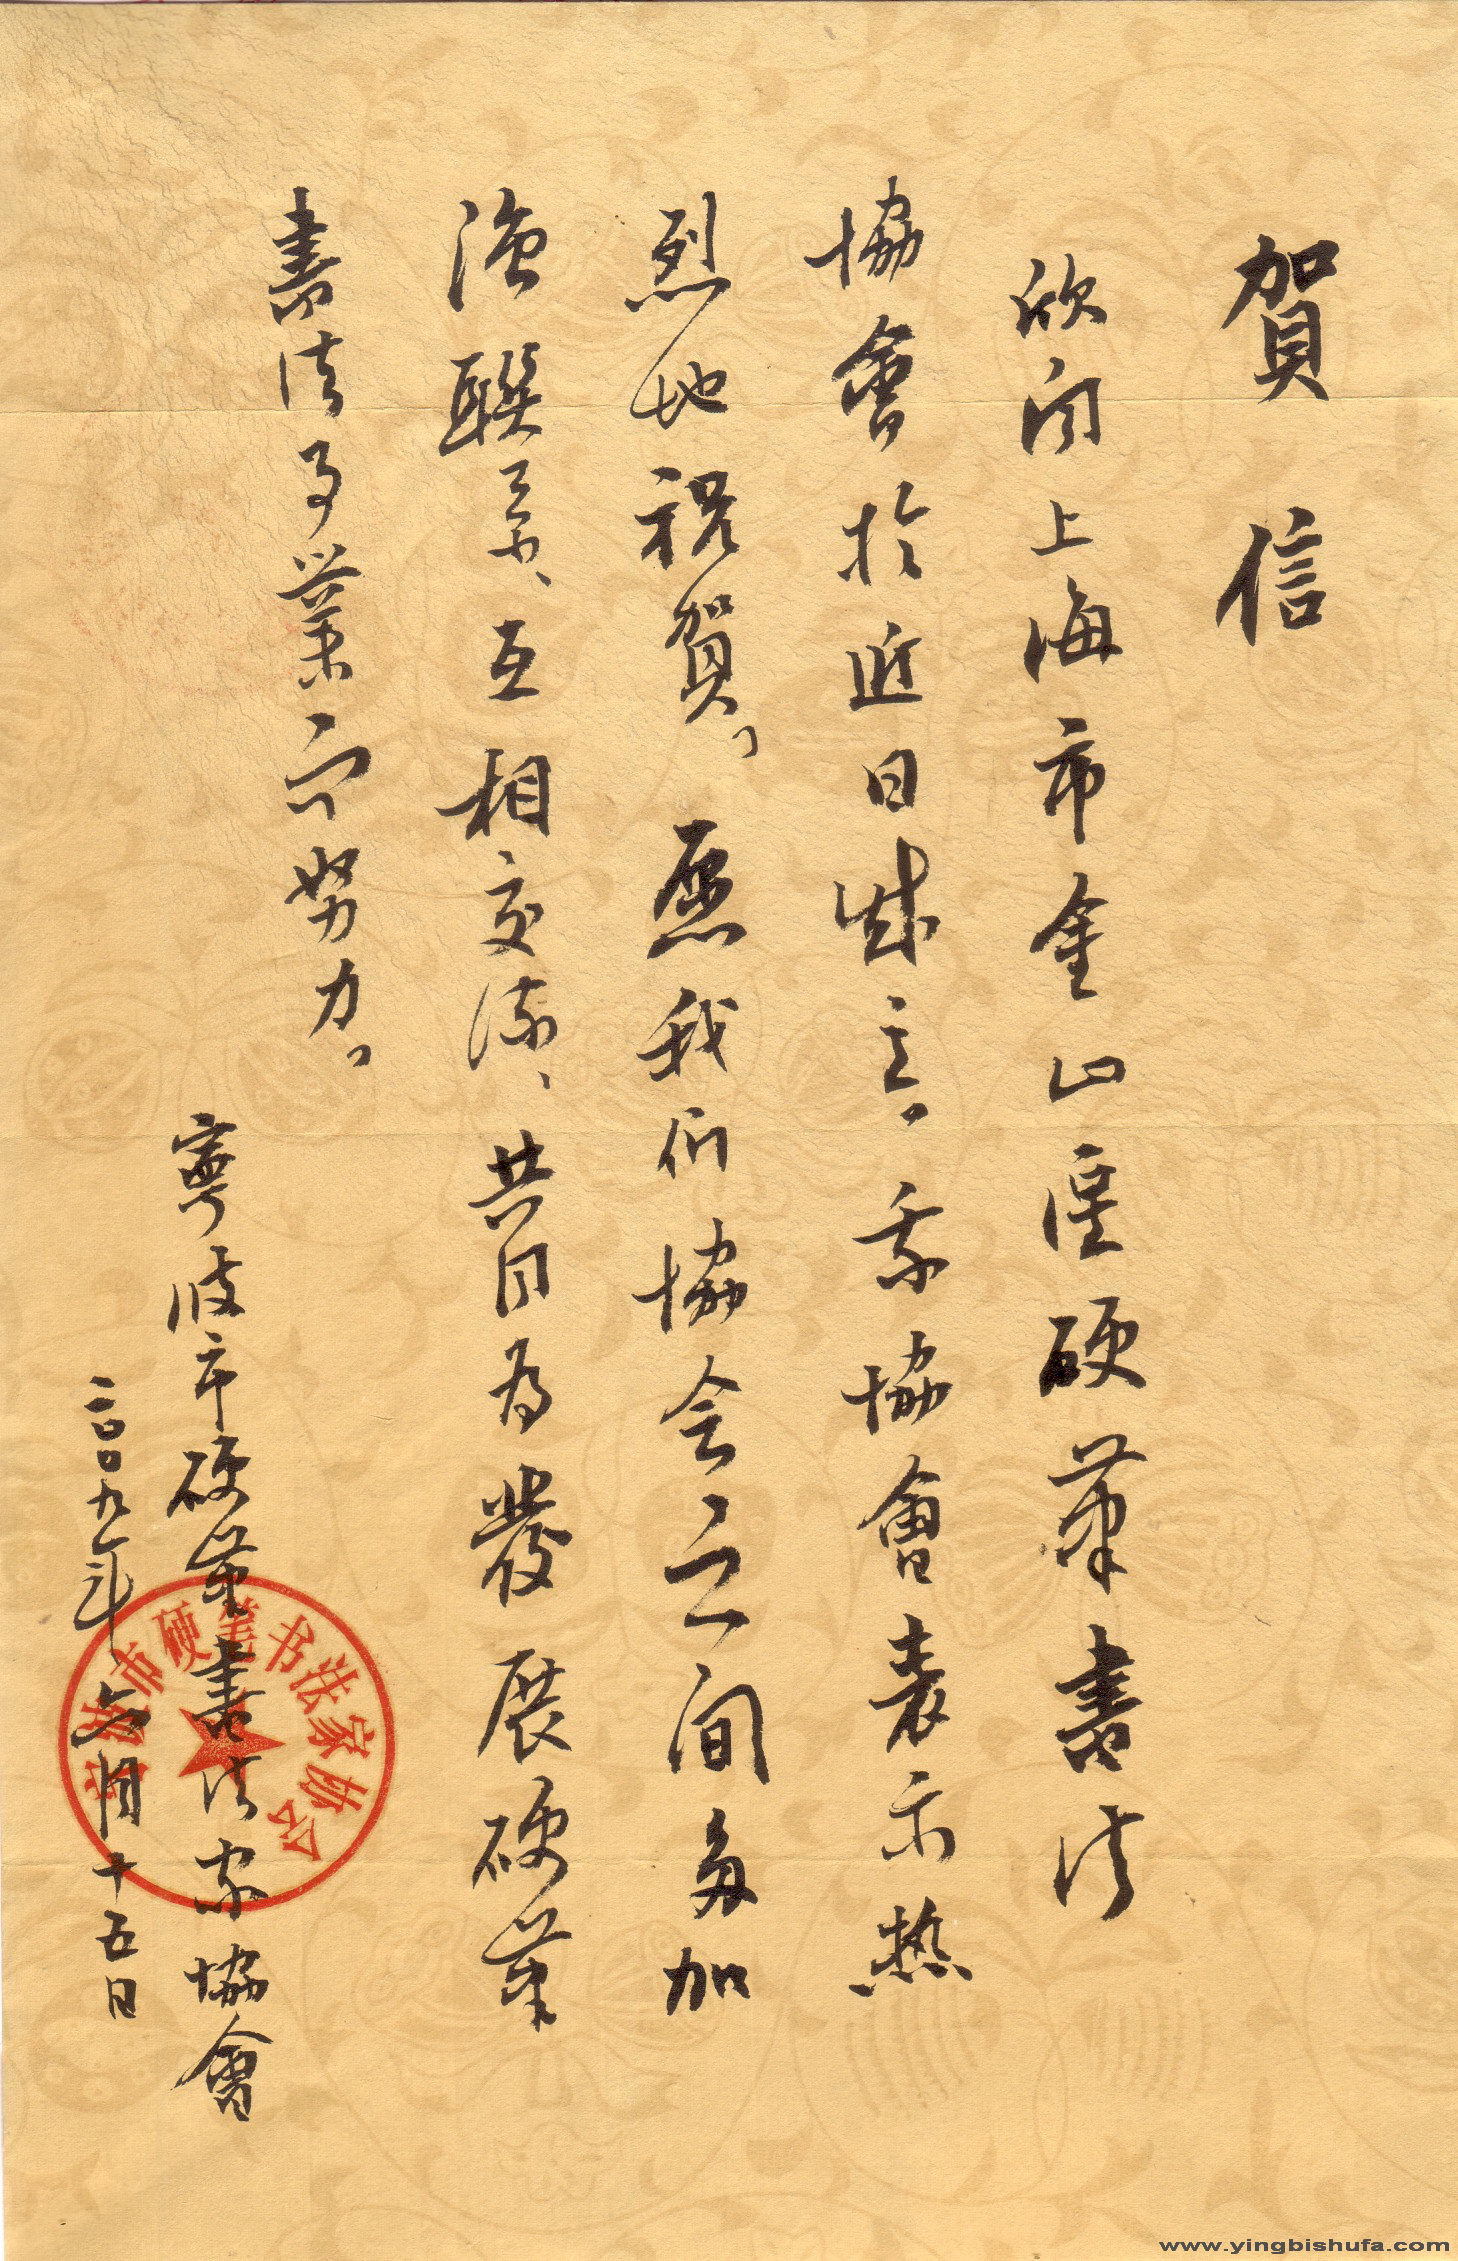 賀信
欣闻上海市金山區硬筆書法
協會於近日成立。我協會表示热
烈地祝賀。愿我们協会之间多加
强聯系、互相交流、共同为發展硬筆
書法事業而努力。
寧波市硬筆書法家協會
二〇〇九年六月十五日
宁波市硬笔书法家协会
www.yingbishufa.com